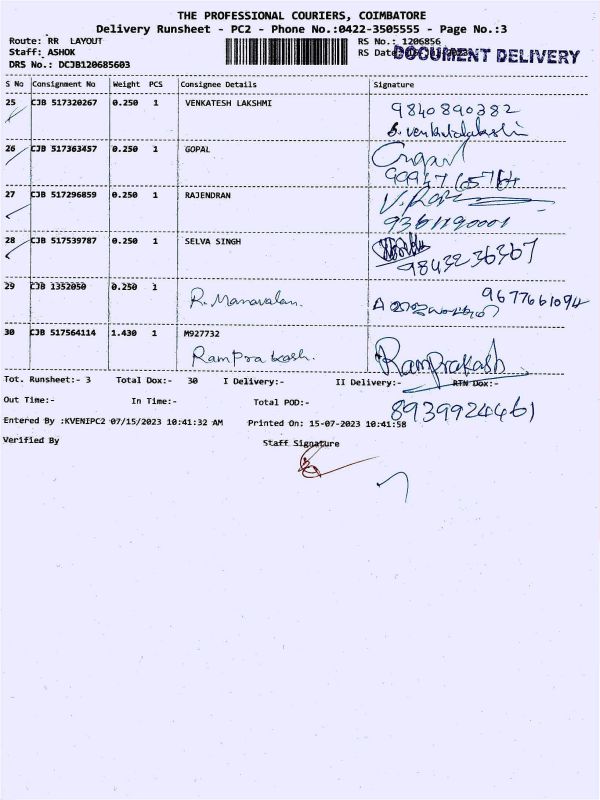 THE PROFESSIONAL COURIERS, COIMBATORE
Delivery Runsheet - PC2 - Phone No.:0422-3505555 - Page No.:3
Route: RR LAYOUT RS No.: 1206856
Staff: ASHOK RS Date: DOCUMENT DELIVERY
DRS No.: DCJB120685603
S No Consignment No Weight PCS Consignee Details Signature
25 CJB 517320267 0.250 1 VENKATESH LAKSHMI 9840890382
26 CJB 517363457 0.250 1 GOPAL
27 CJB 517296859 0.250 1 RAJENDRAN
9361190001
28 CJB 517539787 0.250 1 SELVA SINGH
9843236367
29 CJB 1352050 0.250 1 R. Manavalan. 9677661094
30 CJB 517564114 1.430 1 M927732
RamPrakash. RamPrakash
Tot. Runsheet:- 3 Total Dox:- 30 I Delivery:- II Delivery:- RTN Dox:-
Out Time:- In Time:- Total POD:- 8939924461
Entered By :KVENIPC2 07/15/2023 10:41:32 AM Printed On: 15-07-2023 10:41:58
Verified By Staff Signature